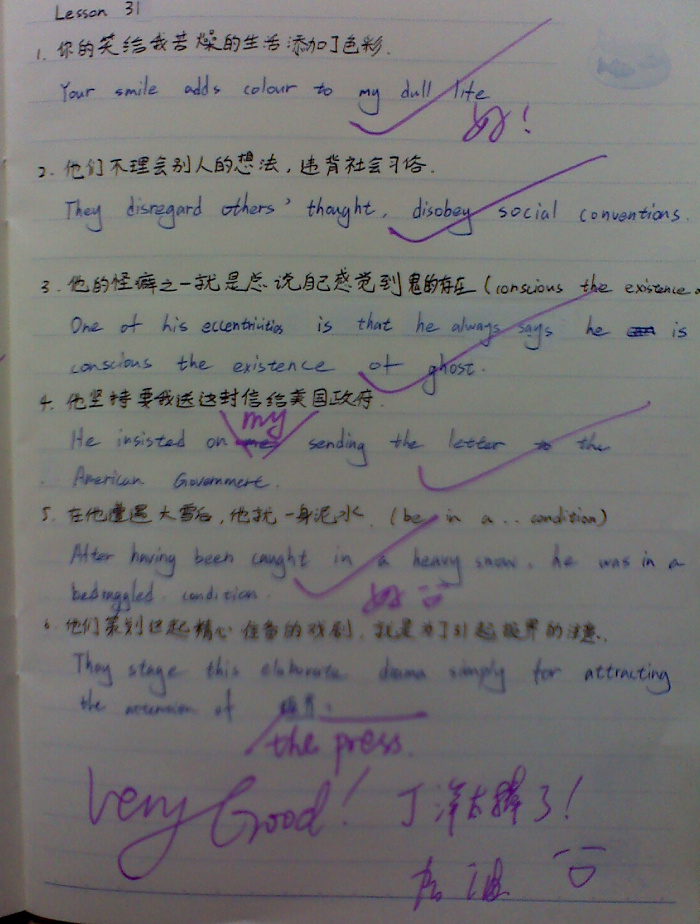 Lesson 31
1. 你的笑给我苦燥的生活添加了色彩.
Your smile adds colour to my dull life
好!
2. 他们不理会别人的想法，违背社会习俗.
They disregard others' thought, disobey social conventions.
3. 他的怪癖之一就是总说自己感觉到鬼的存在 (conscious the existence
One of his eccentricities is that he always says he is
conscious the existence of ghost.
4. 他坚持要我送这封信给美国政府.
my
He insisted on me sending the letter to the
American Government.
5. 在他遭遇大雪后, 他就一身泥水. (be in a .. condition)
After having been caught in a heavy snow, he was in a
bedraggled condition.
好
6. 他们策划这起精心准备的戏剧, 就是为了引起报界的注意.
They stage this elaborate drama simply for attracting
the attention of 报界.
the press.
Very Good! 丁洋太棒了!